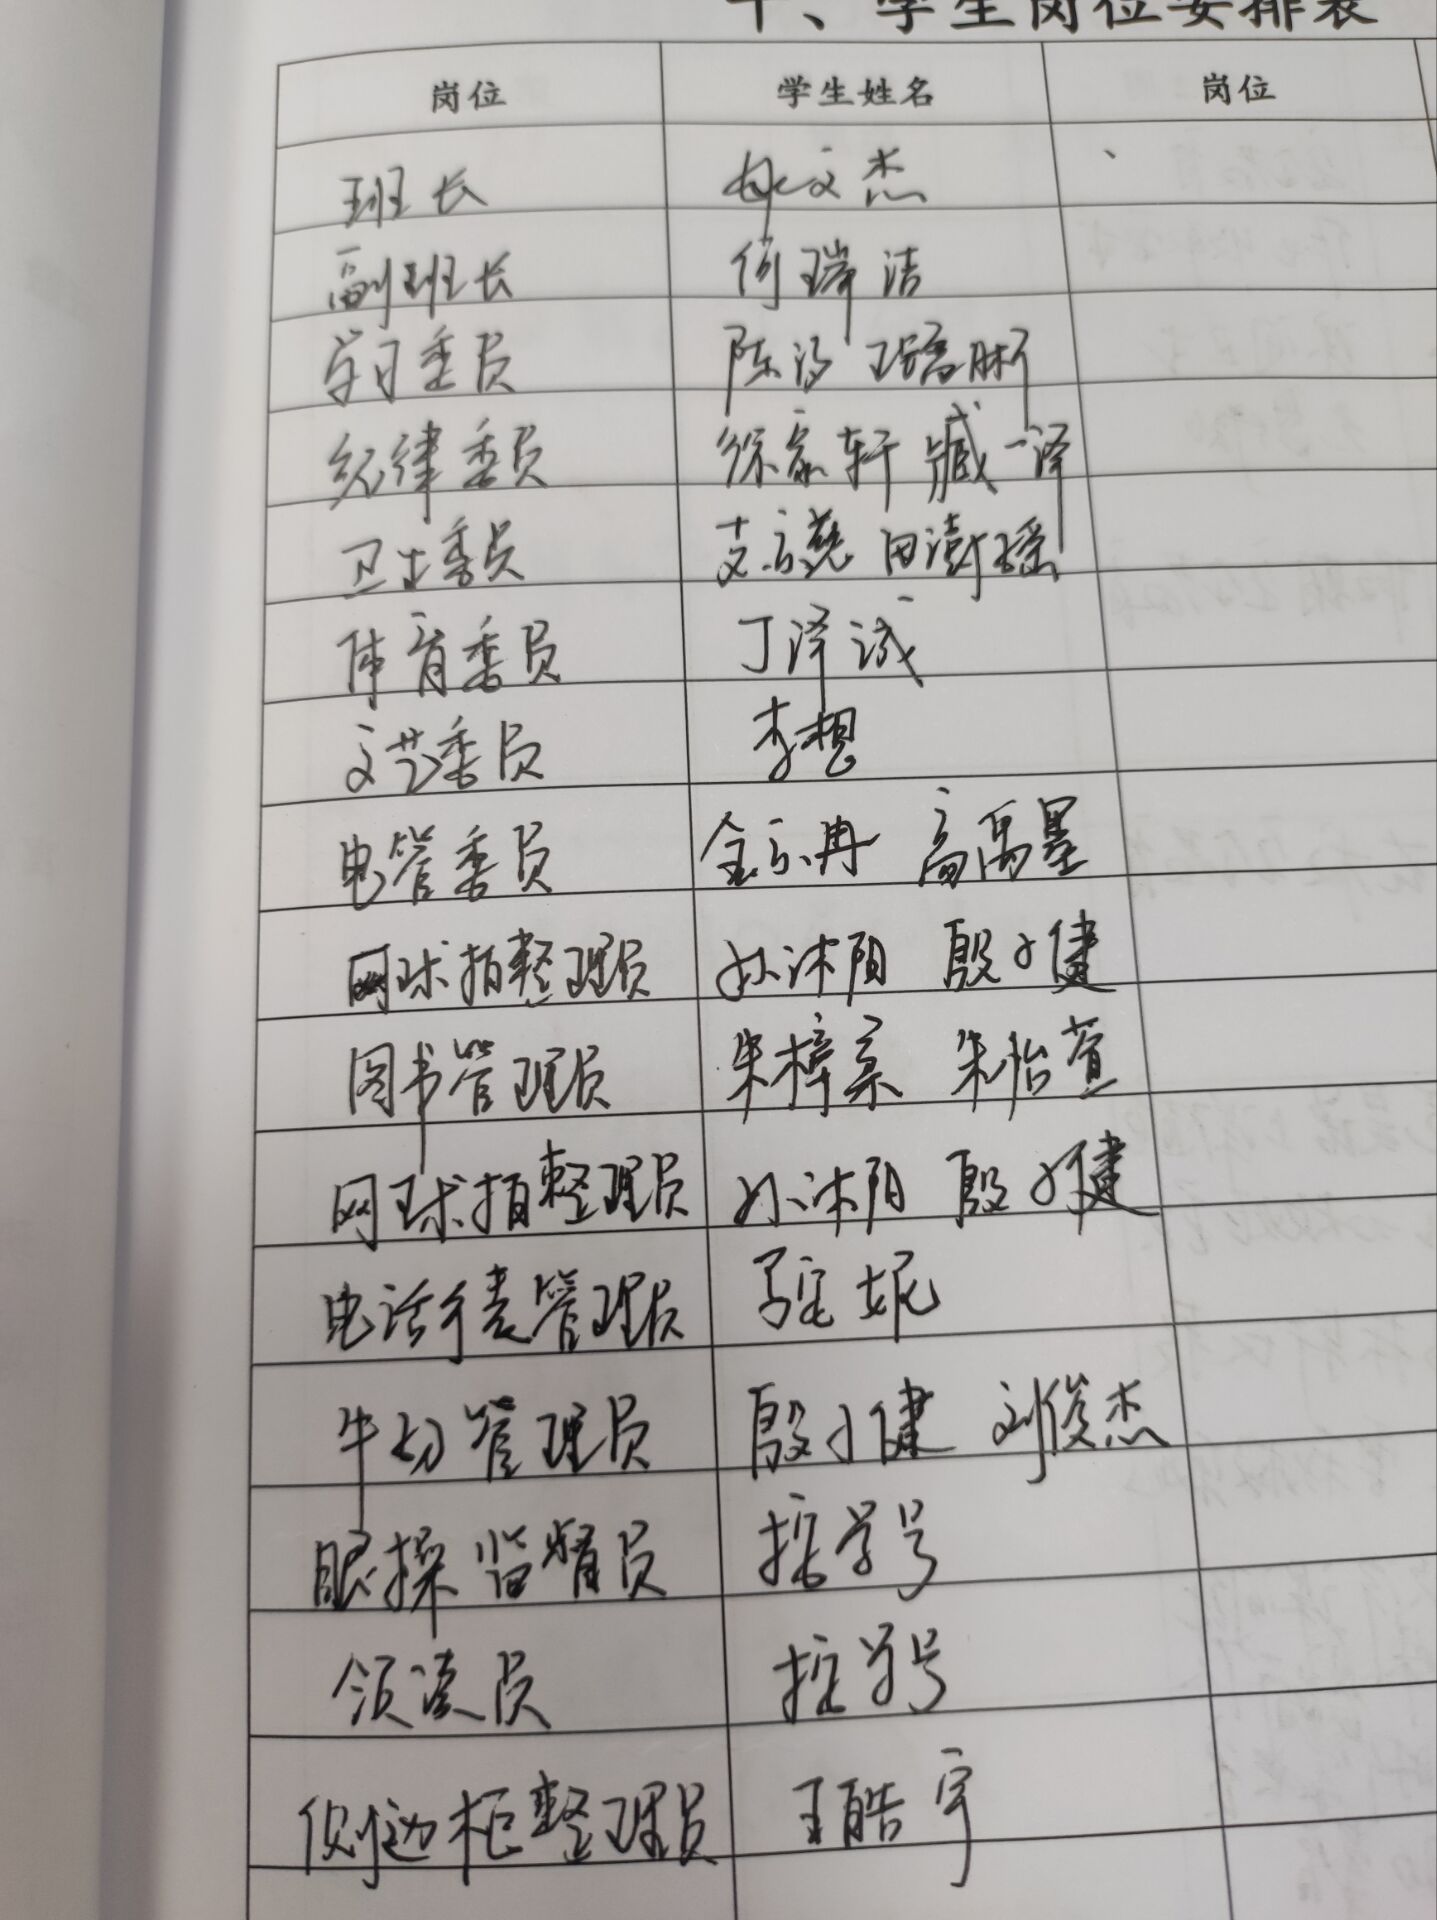 十、学生岗位安排表
岗位 学生姓名 岗位
班长 文杰
副班长 何瑞洁
学习委员 陈 王
纪律委员 徐家轩 臧一泽
卫生委员 艾 田澍瑶
体育委员 丁泽诚
文艺委员 李想
电管委员 金 冉 高禹墨
网球拍整理员 孙沐阳 殷小健
图书管理员 朱梓 朱怡萱
网球拍整理员 孙沐阳 殷小健
电话 管理员 妮
牛奶管理员 殷小健 刘俊杰
眼操监督员 按学号
领读员 按学号
侧边柜整理员 王皓宇